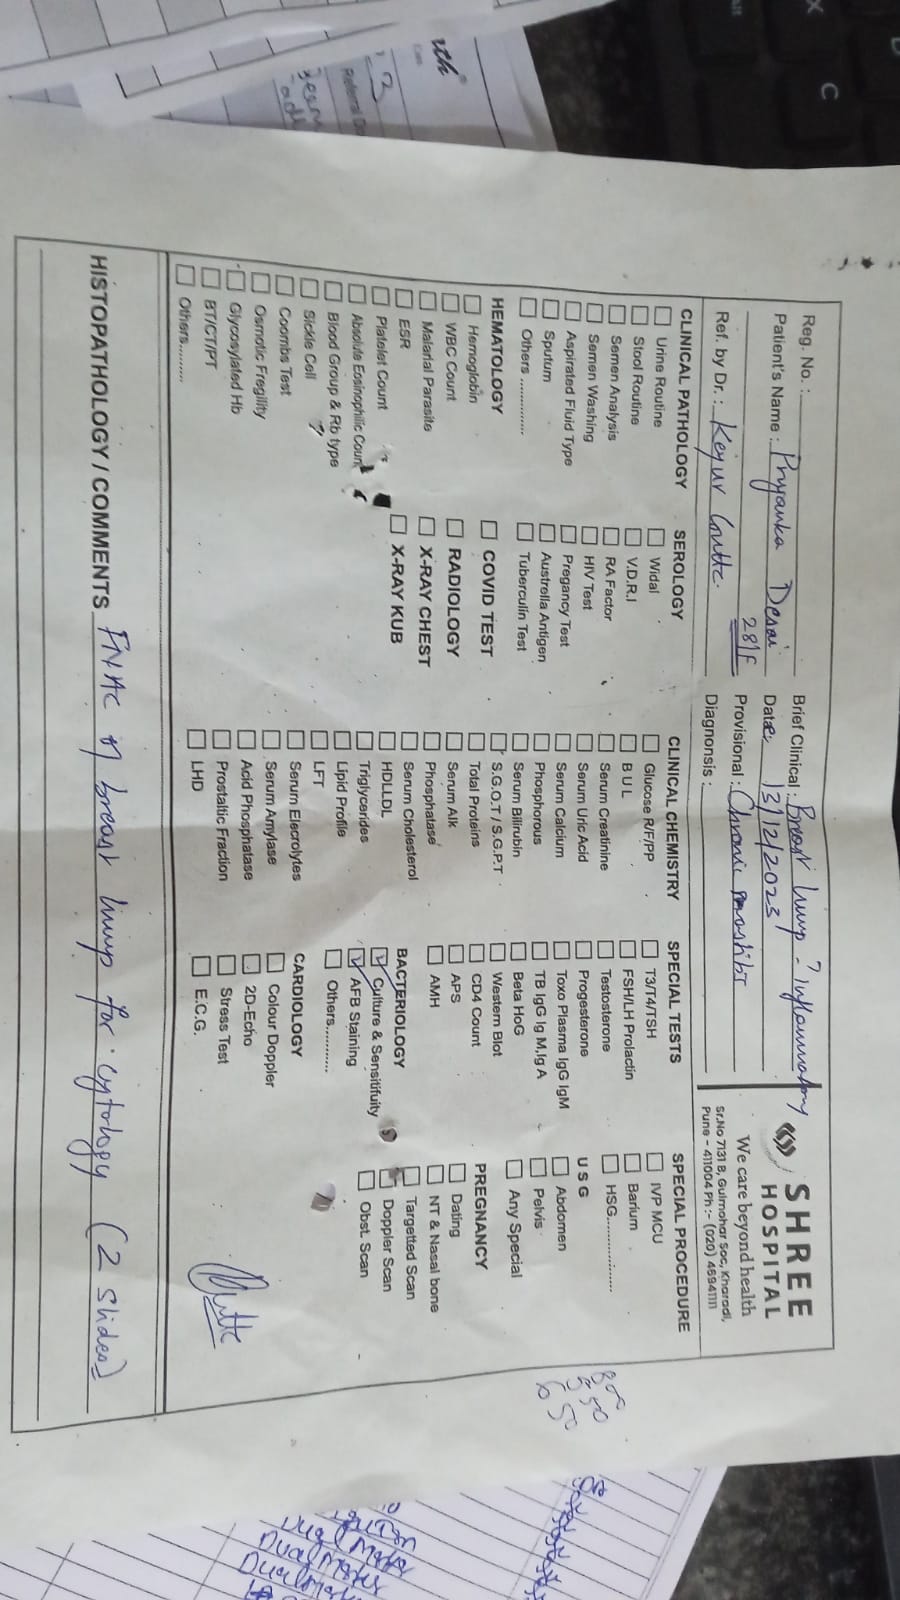 Reg. No. :
Patient's Name : Priyanka Desai
28/F
Ref. by Dr. : Keyur
Brief Clinical : Breast lump - ? Inflammatory
Date: 13/12/2023
Provisional : Chronic
Diagnonsis :
SHREE
HOSPITAL
We care beyond health
Sr.No 7131 B, Gulmohar Soc, Kharadi,
Pune - 411004 Ph :- (020) 45941111
CLINICAL PATHOLOGY
Urine Routine
Stool Routine
Semen Analysis
Semen Washing
Aspirated Fluid Type
Sputum
Others ............
HEMATOLOGY
Hemoglobin
WBC Count
Malarial Parasite
ESR
Platelet Count
Absolute Eosinophilic Coun
Blood Group & Rb type
Sickle Cell
Coombs Test
Osmotic Fregility
Glycosylated Hb
BT/CT/PT
Others..........
SEROLOGY
Widal
V.D.R.I
RA Factor
HIV Test
Pregancy Test
Austrella Antigen
Tuberculin Test
COVID TEST
RADIOLOGY
X-RAY CHEST
X-RAY KUB
CLINICAL CHEMISTRY
Glucose R/F/PP
B U L
Serum Creatinine
Serum Uric Acid
Serum Calcium
Phosphorous
Serum Bilirubin
S.G.O.T / S.G.P.T
Total Proteins
Serum Alk
Phosphatase
Serum Cholesterol
HDLLDL
Triglycerides
Lipid Profile
LFT
Serum Elecrolytes
Serum Amylase
Acid Phosphatase
Prostaltic Fraction
LHD
SPECIAL TESTS
T3/T4/TSH
FSH/LH Prolactin
Testosterone
Progesterone
Toxo Plasma IgG IgM
TB IgG Ig M,Ig A
Beta HoG
Western Blot
CD4 Count
APS
AMH
BACTERIOLOGY
Culture & Sensitifuity
AFB Staining
Others............
CARDIOLOGY
Colour Doppler
2D-Echo
Stress Test
E.C.G.
SPECIAL PROCEDURE
IVP MCU
Barium
HSG..................
U S G
Abdomen
Pelvis
Any Special
PREGNANCY
Dating
NT & Nasal bone
Targetted Scan
Doppler Scan
Obst. Scan
HISTOPATHOLOGY / COMMENTS FNAC of breast lump for cytology (2 slides)